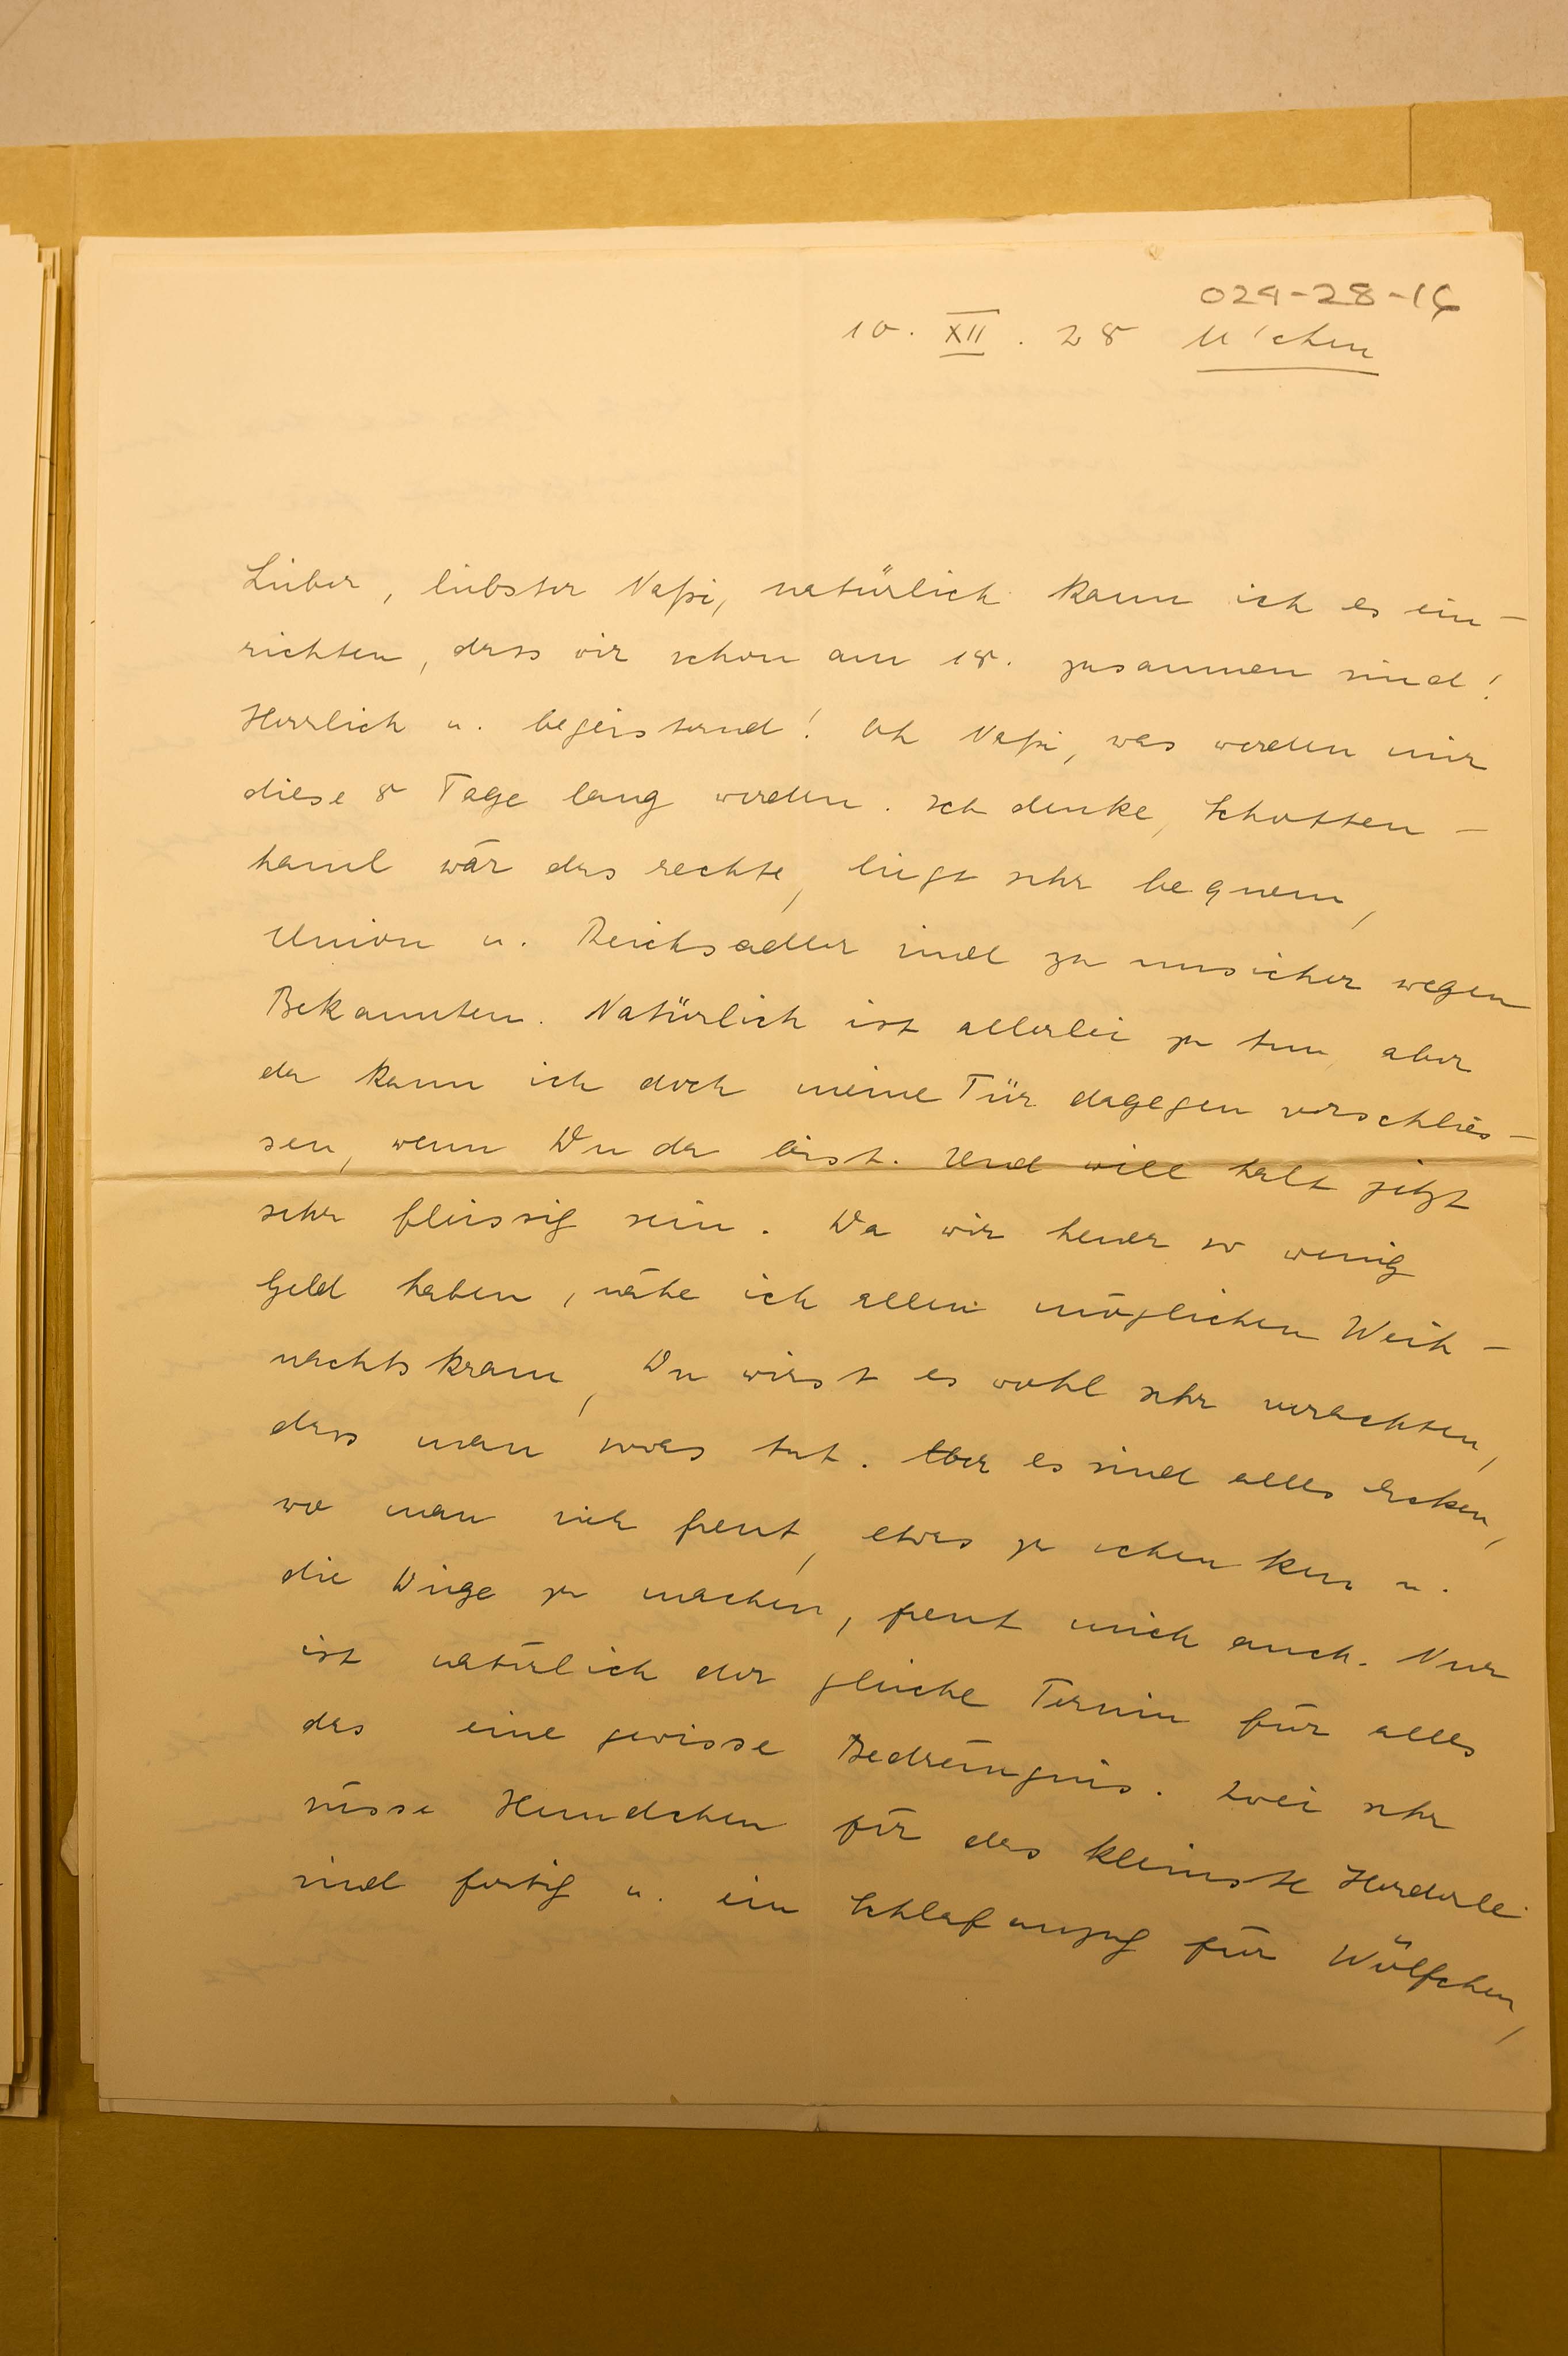 029-28-16
10. XII. 28 M'chen
Lieber, liebster Napi, natürlich kann ich es ein-
richten, dass wir schon am 18. zusammen sind!
Herrlich u. begeisternd! Oh Napi, was werden mir
diese 8 Tage lang werden. Ich denke, Schotten-
haml wär das rechte, liegt sehr bequem,
Union u. Reichsadler sind zu unsicher wegen
Bekannten. Natürlich ist allerlei zu tun, aber
da kann ich doch meine Tür dagegen verschlies-
sen, wenn Du da bist. Und will halt jetzt
sehr fleissig sein. Da wir heuer so wenig
Geld haben, nähe ich allen möglichen Weih-
nachtskram, Du wirst es wohl sehr verachten,
dass man sowas tut. Aber es sind alles Ecken,
wo man sich freut, etwas zu schenken u.
die Dinge zu machen, freut mich auch. Nur
ist natürlich der gleiche Termin für alles
das eine gewisse Bedrängnis. Zwei sehr
süsse Hemdchen für das kleinste Herderle
sind fertig u. ein Schlafanzug für Wölfchen,